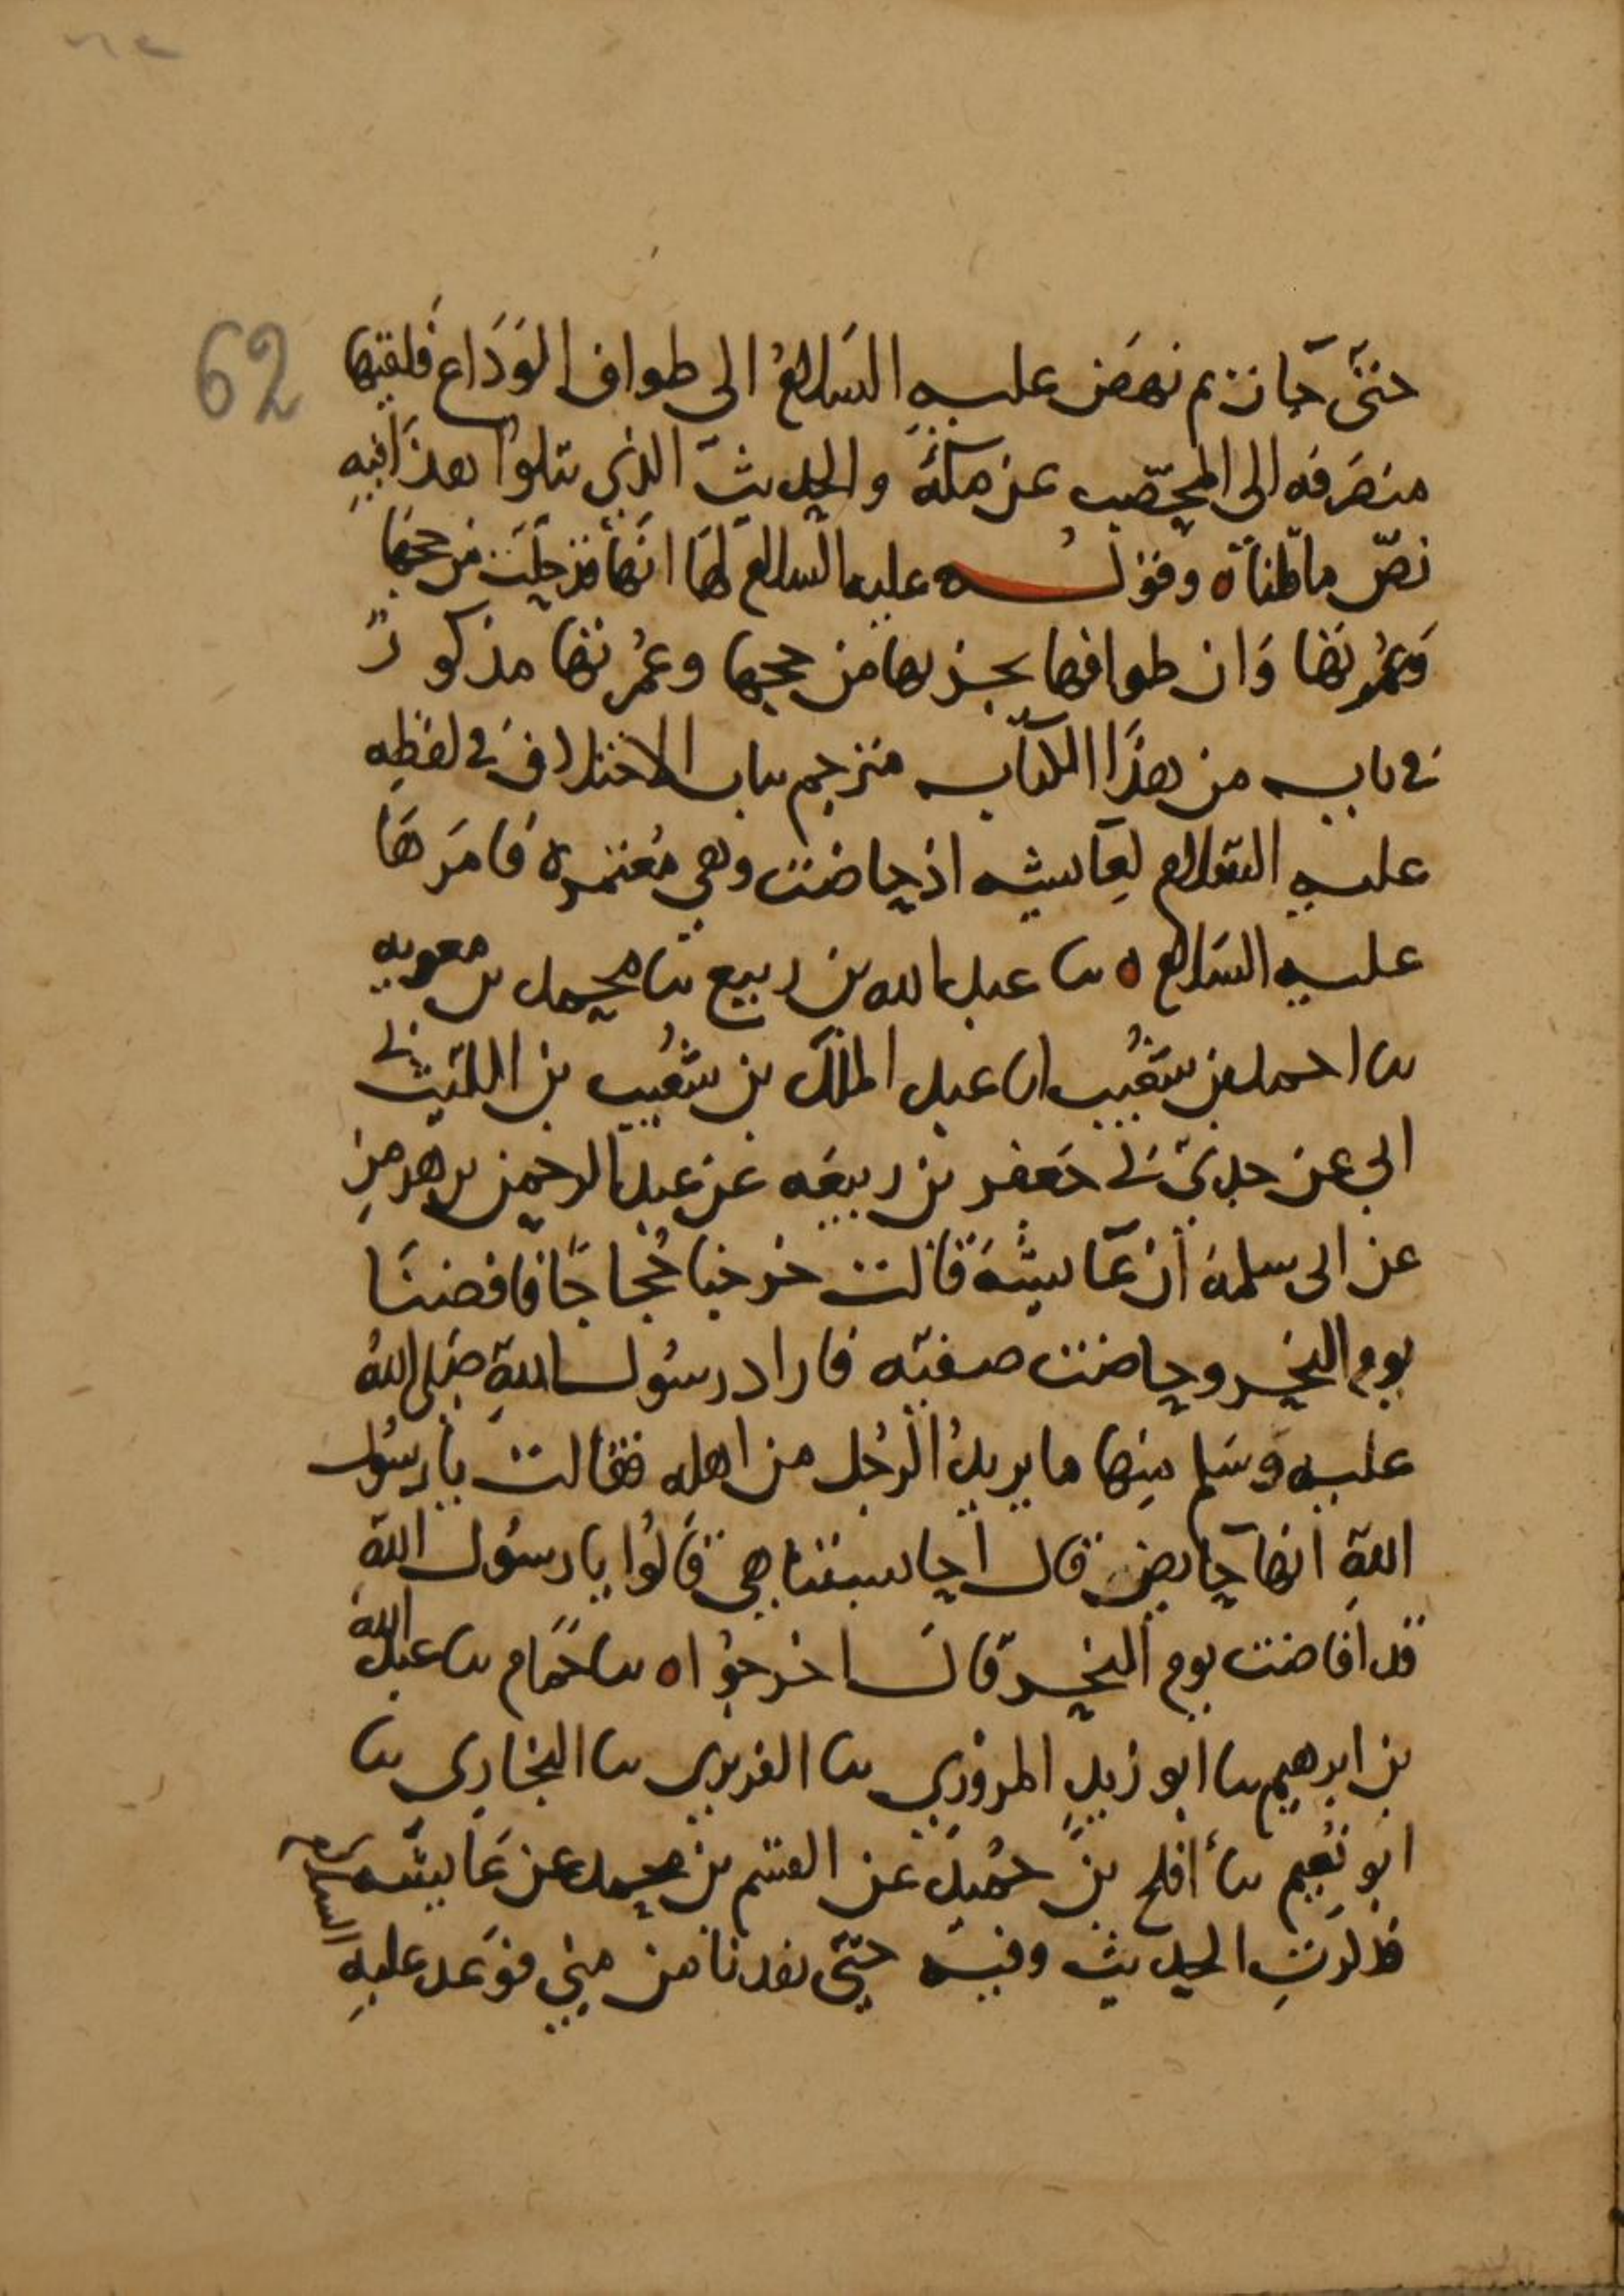 62
حتى جازت ثم نهض عليه السلام الى طواف الوداع فلقيها
منصرفه الى المحصب عن مكة والحديث الذي يتلوا هذا فيه
نص ما قلناه وقوله عليه السلام لها انها قد حلت من حجها
وعمرتها وان طوافها يجزيها من حجها وعمرتها مذكور
في باب من هذا الكتاب مترجم بباب الاختلاف في لفظه
عليه السلام لعايشه اذ حاضت وهي معتمرة فامرها
عليه السلام ه ثنا عبد الله بن ربيع ثنا محمد بن معويه
ثنا احمد بن شعيب انا عبد الملك بن شعيب بن الليث ني
ابي عن جدي ني جعفر بن ربيعه عن عبد الرحمن بن هرمز
عن ابي سلمة ان عايشة قالت خرجنا حجاجا فافضنا
يوم النحر وحاضت صفيه فاراد رسول الله صلى الله
عليه وسلم منها ما يريد الرجل من اهله فقالت يا رسول
الله انها حايض قال احابستنا هي قالوا يا رسول الله
قد افاضت يوم النحر قال اخرجوا ه ثنا حمام ثنا عبد الله
بن ابرهيم ثنا ابو زيد المروزي ثنا الفربري ثنا البخاري ثنا
ابو نعيم ثنا أفلح بن حميد عن القسم بن محمد عن عايشه
فذكرت الحديث وفيه حتى نفرنا من منى فوعد عليه السلم